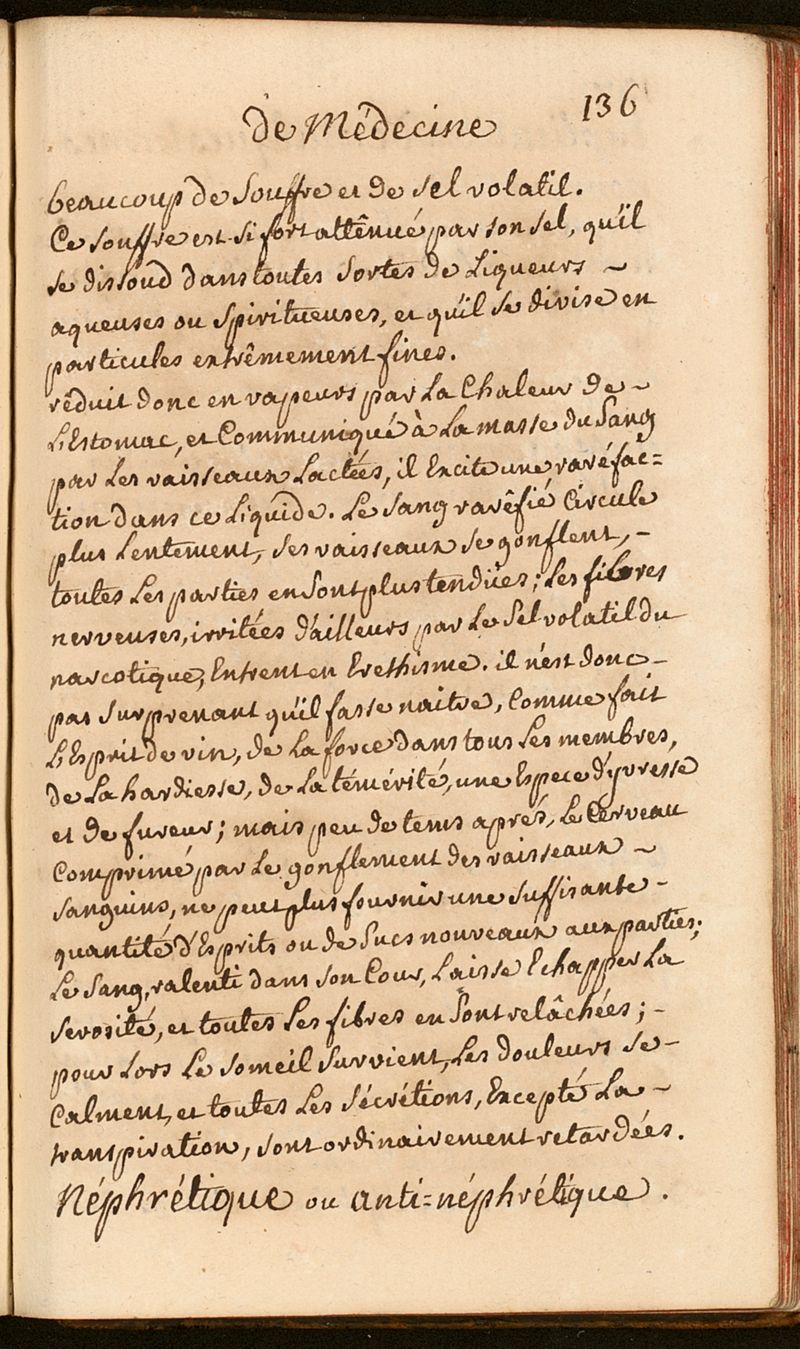 136
de Médecine
beaucoup de Souffre et de sel volatil.
Ce souffre est si fort attênué par son sel, qu'il
se dissoud dans toutes Sortes de Liqueurs ~
aqueuses ou Spiritueuses, et qu'il se divise en
particules extrêmement fines.
rêduit donc en vapeurs par La Chaleur de ~
L'Estomac, et Communiqué à La masse du Sang
par Les vaisseaux Lactées, il Excite une raréfac=
tion dans ce Liquide. Le sang rarêfié Circule
plus Lentement, ses vaisseaux se gonflent, -
toutes Les parties en Sont plus tendües; Les fibres
nerveuses, irritées d'ailleurs par Le Sel volatil du
narcotique, Entrent en Erethisme. il n'est donc -
pas surprenant qu'il fasse naitre, Comme fait
L'Esprit de vin, de La force dans tous Les membres,
de La hardiesse, de La témérité, une Espece d'yvresse
et de fureur; mais peu de tems aprés, Le Cerveau
Comprimé par Le gonflement des vaisseaux ~
Sanguins, ne peut plus fournir une suffisante -
quantité d'Esprits ou de Sucs nouveaux aux parties;
Le Sang, ralenti dans son Cour, Laisse Echapper La
Serosité, et toutes Les fibres en Sont relâchées; -
pour Lors Le someil Survient, Les douleurs se -
Calment, et toutes Les sécrétions, Excepté La -
transpiration, sont ordinairement retardées.
Néphrétique ou anti=néphrétique.